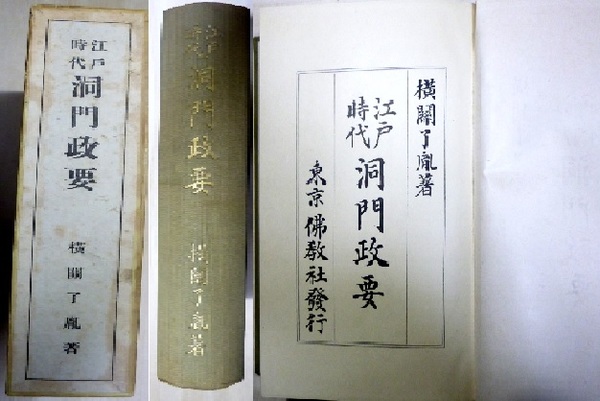 江戸
時代
洞門政要
橫關了胤著
江戸
時代
洞門政要
橫關了胤著
橫關了胤著
江戸
時代
洞門政要
東京佛教社發行